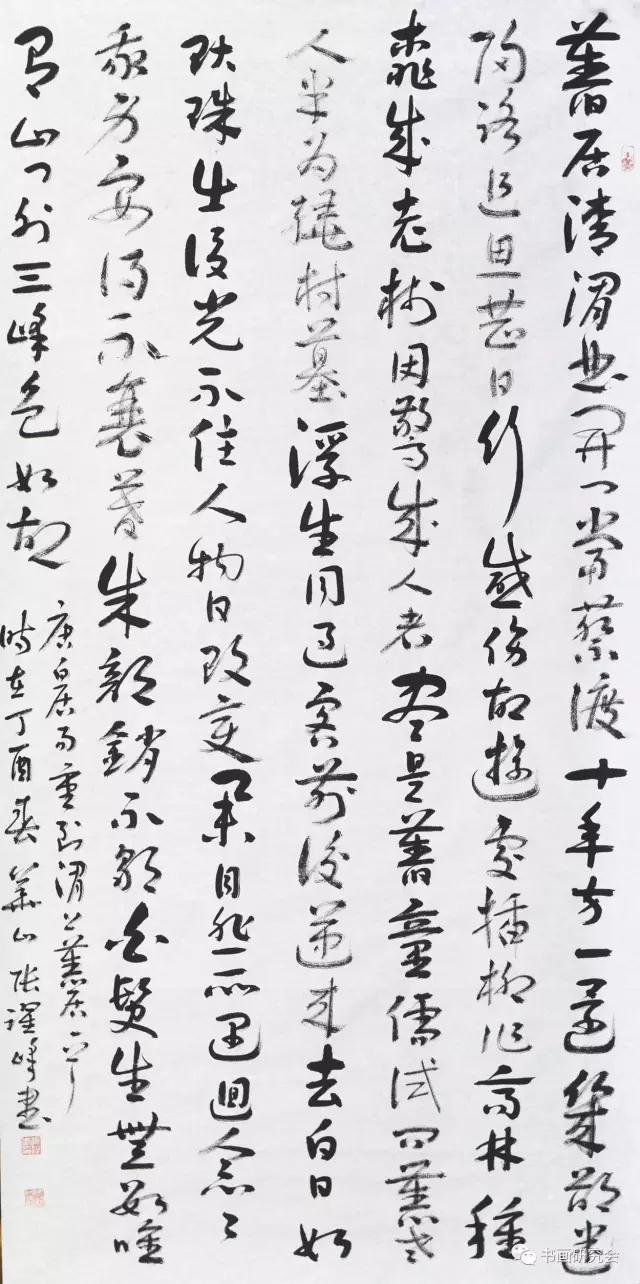 舊居清渭曲開门當蔡渡十年方一還幾欲迷
歸路追思昔日行感傷故遊處插柳作高林種
桃成老樹因驚成人者盡是舊童儒試問舊老
人半為繞村墓浮生同過客前後遞来去白日如
弄珠出沒光不住人物日改變舉目悲所遇迴念念
我身安得不衰暮朱顏銷不歇白髮生無數唯
有山门外三峰色如故
唐白居易重到渭上舊居一首
時在丁酉春華山張耀峰書
书画研究会